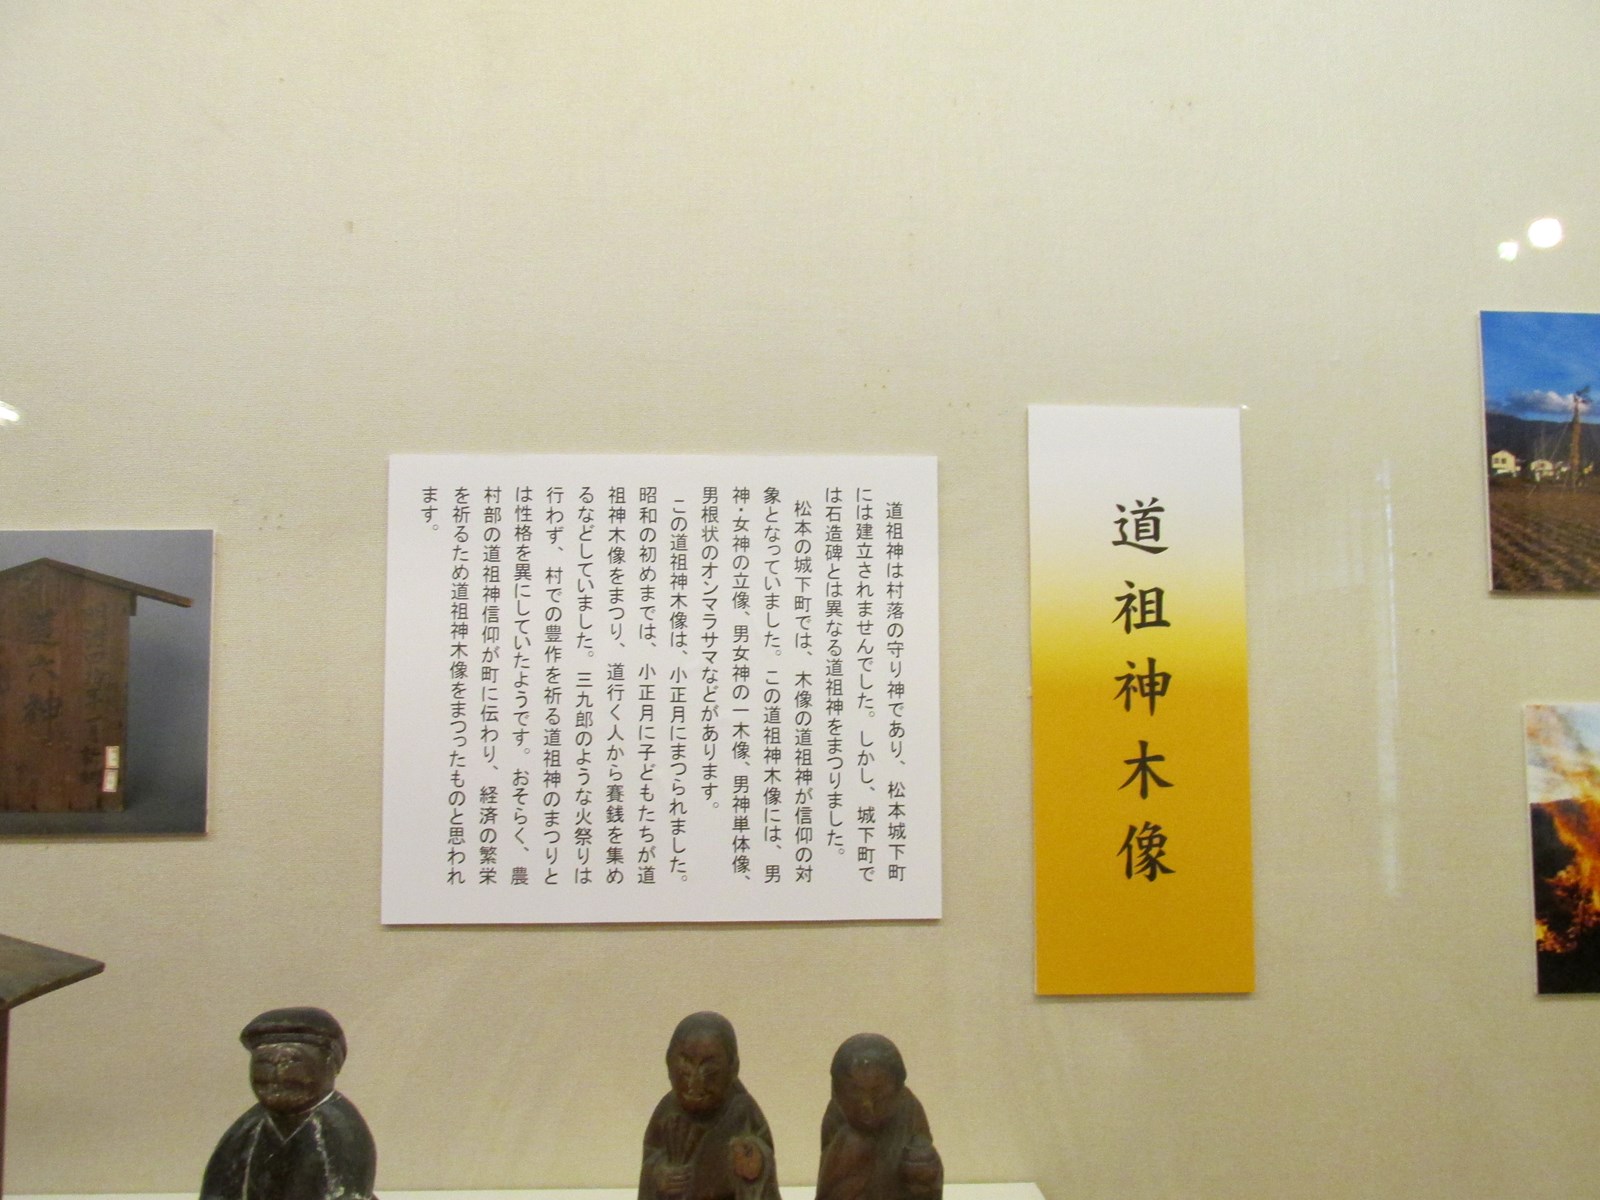 道祖神木像
道祖神は村落の守り神であり、松本城下町
には建立されませんでした。しかし、城下町で
は石造碑とは異なる道祖神をまつりました。
松本の城下町では、木像の道祖神が信仰の対
象となっていました。この道祖神木像には、男
神・女神の立像、男女神の一木像、男神単体像、
男根状のオンマラサマなどがあります。
この道祖神木像は、小正月にまつられました。
昭和の初めまでは、小正月に子どもたちが道
祖神木像をまつり、道行く人から賽銭を集め
るなどしていました。三九郎のような火祭りは
行わず、村での豊作を祈る道祖神のまつりと
は性格を異にしていたようです。おそらく、農
村部の道祖神信仰が町に伝わり、経済の繁栄
を祈るため道祖神木像をまつったものと思われ
ます。
六神